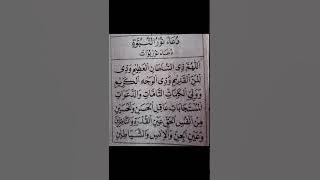 دُعَاءْ نُوْرُ النُّبُوَّةِ
دعاء نور نبوة
اَللّٰهُمَّ ذِى السُّلْطَانِ الْعَظِيْمِ وَذِى
الْمَنِّ الْقَدِيْمِ وَذِى الْوَجْهِ الْكَرِيْمِ
وَوَلِيِّ الْكَلِمَاتِ التَّامَّاتِ وَالدَّعَوَاتِ
الْمُسْتَجَابَاتِ عَاقِلِ الْحَسَنِ وَالْحُسَيْنِ
مِنْ اَنْفُسِ الْحَقِّ عَيْنِ الْقُدْرَةِ وَالنَّاظِرِيْنَ
وَعَيْنِ الْجِنِّ وَالْاِنْسِ وَالشَّيَاطِيْنِ